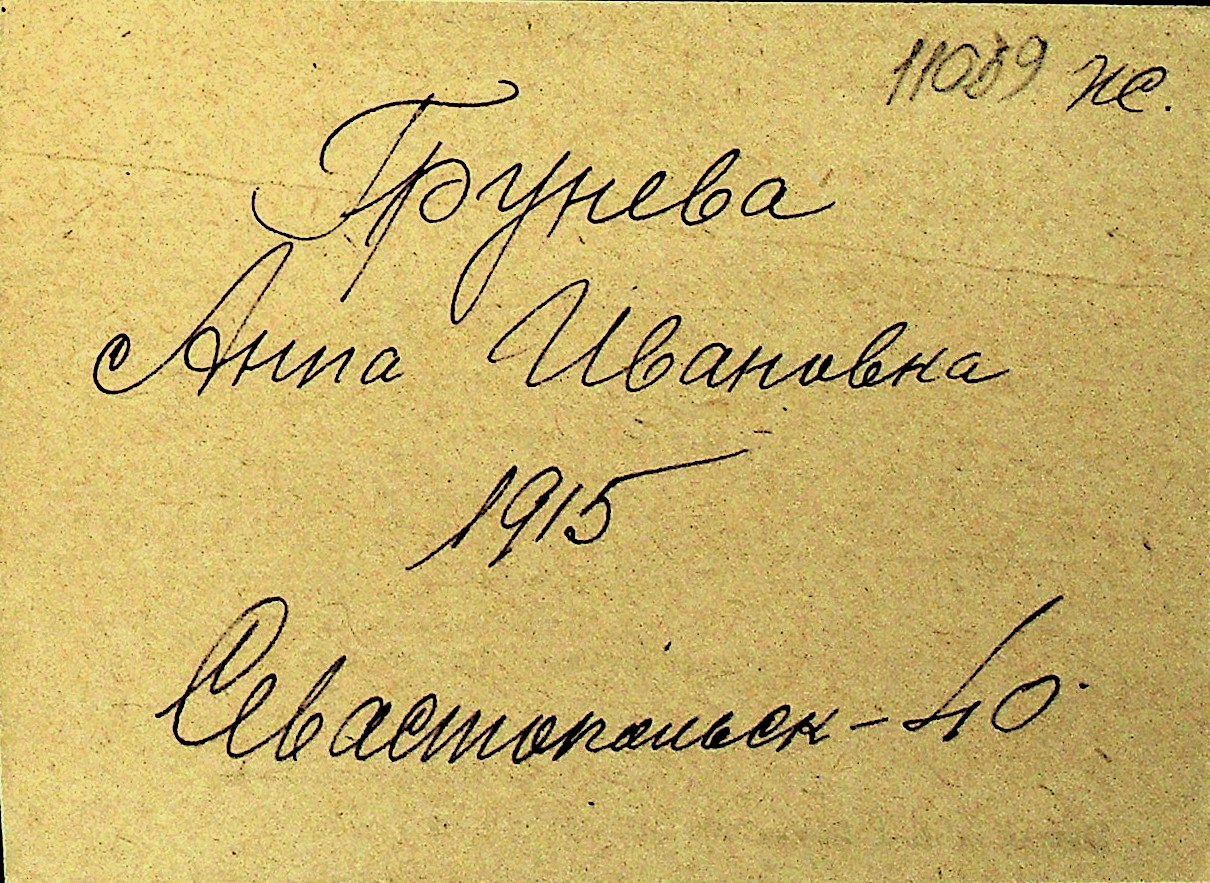 нс.
Грунева
Анна Ивановна
1915
Севастопольск - 40